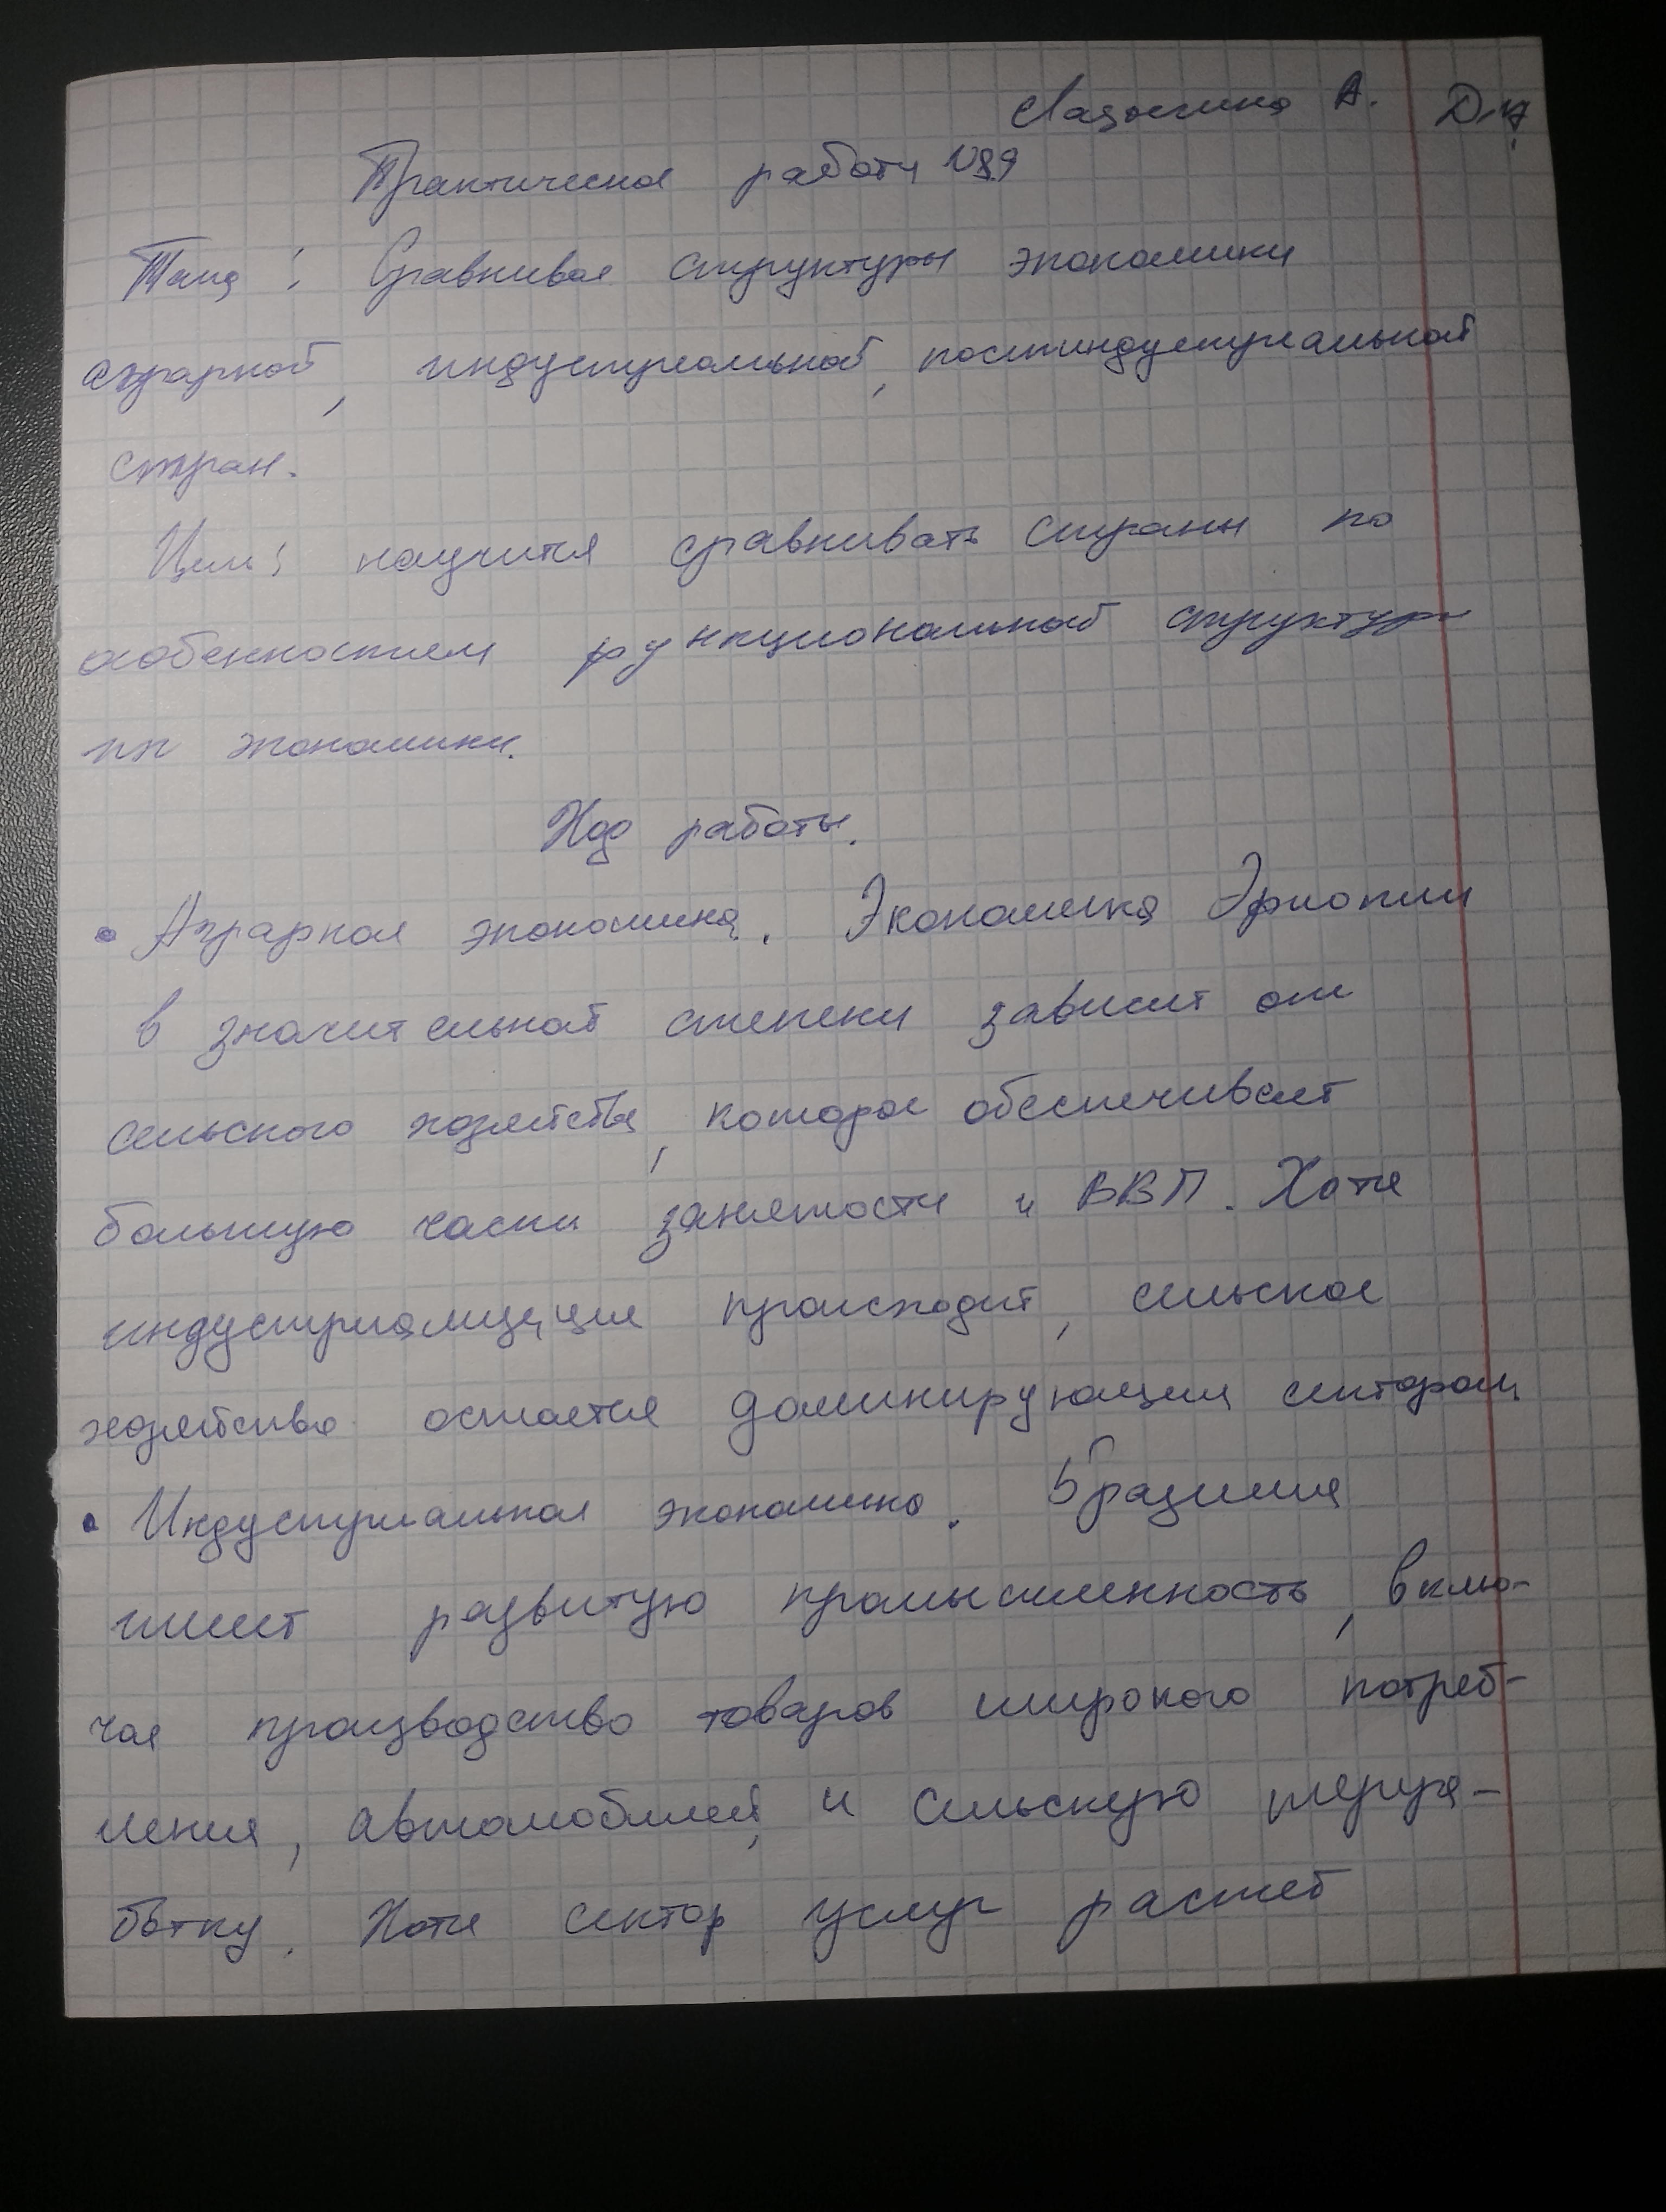 А. Д-17
Практическая работа №8.9
Тема: Сравнивая структуры экономики
аграрной, индустриальной, постиндустриальной
стран.
Цель: научится сравнивать страны по
особенностям функциональной структур
экономики.
Ход работы.
• Аграрная экономика. Экономика Эфиопии
в значительной степени зависит от
сельского хозяйства, которое обеспечивает
большую часть занятости и ВВП. Хотя
индустриализация происходит, сельское
хозяйство остается доминирующим сектором
• Индустриальная экономика. Бразилия
имеет развитую промышленность, вклю-
чая производство товаров широкого потреб-
ления, автомобилей, и сельскую перера-
ботку. Хотя сектор услуг растет